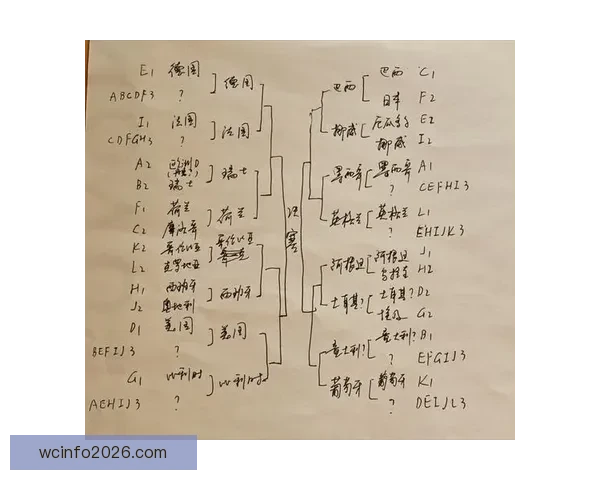 E1 德国
ABCDF3 ?
德国
I1 法国
CDFGH3 ?
法国
A2 欧洲D
B2 瑞士
瑞士
F1 荷兰
C2 摩洛哥
荷兰
K2 哥伦比亚
L2 克罗地亚
哥伦比亚
H1 西班牙
J2 奥地利
西班牙
D1 美国
BEFIJ3 ?
美国
G1 比利时
AEHIJ3 ?
比利时
决赛
巴西
巴西 C1
日本 F2
挪威
厄瓜多尔 E2
挪威 I2
墨西哥
墨西哥 A1
? CEFHI3
英格兰
英格兰 L1
? EHIJK3
阿根廷
阿根廷 J1
乌拉圭 H2
土耳其?
土耳其? D2
埃及 G2
意大利?
意大利? B1
? EFGIJ3
葡萄牙
葡萄牙 K1
? DEIJL3
wcinfo2026.com